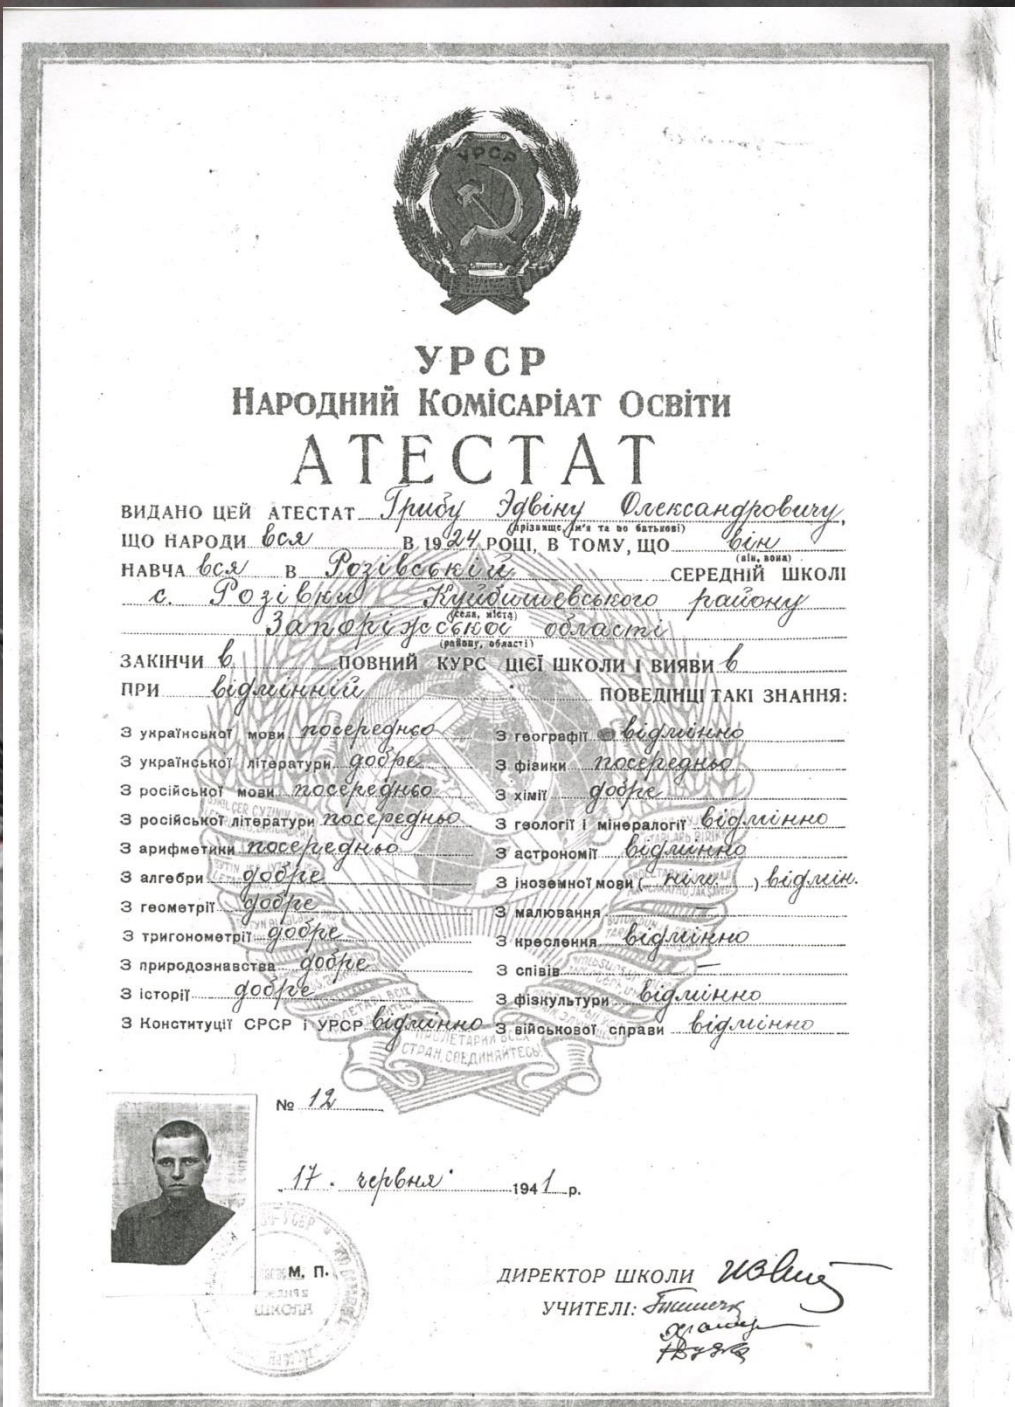 УРСР
УРСР
НАРОДНИЙ КОМІСАРІАТ ОСВІТИ
АТЕСТАТ
ВИДАНО ЦЕЙ АТЕСТАТ Грибу Эдвіну Олександровичу,
(прізвище, ім'я та по батькові)
ЩО НАРОДИ вся В 1924 РОЦІ, В ТОМУ, ЩО він
(він, вона)
НАВЧА вся В Розівській СЕРЕДНІЙ ШКОЛІ
с. Розівки Куйбишевського району
(села, міста)
Запоріжської області
(району, області)
ЗАКІНЧИ в ПОВНИЙ КУРС ЦІЄЇ ШКОЛИ І ВИЯВИ в
ПРИ відмінній ПОВЕДІНЦІ ТАКІ ЗНАННЯ:
З української мови посередньо
З української літератури добре
З російської мови посередньо
З російської літератури посередньо
З арифметики посередньо
З алгебри добре
З геометрії добре
З тригонометрії добре
З природознавства добре
З історії добре
З Конституції СРСР і УРСР відмінно
З географії відмінно
З фізики посередньо
З хімії добре
З геології і мінералогії відмінно
З астрономії відмінно
З іноземної мови ( нім. ) відмін.
З малювання —
З креслення відмінно
З співів —
З фізкультури відмінно
З військової справи відмінно
ПРОЛЕТАРИ ВСЕХ
СТРАН, СОЕДИНЯЙТЕСЬ!
№ 12
17. червня 1941 р.
М. П.
ШКОЛА
ДИРЕКТОР ШКОЛИ
УЧИТЕЛІ: